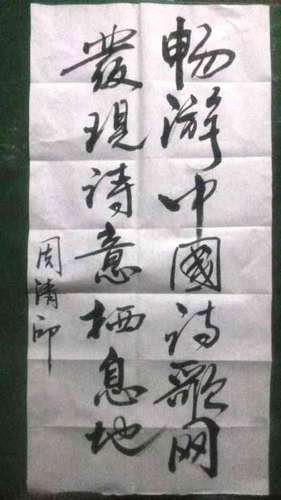 畅游中國诗歌网
發现诗意栖息地
周清印